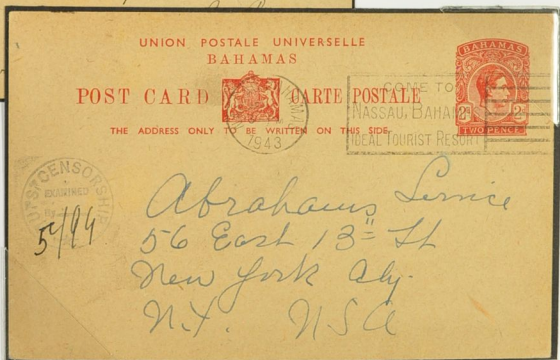 UNION POSTALE UNIVERSELLE
BAHAMAS
POST CARD CARTE POSTALE
THE ADDRESS ONLY TO BE WRITTEN ON THIS SIDE.
BAHAMAS
2D 2D
TWO PENCE
1943
COME TO
NASSAU, BAHAMAS
IDEAL TOURIST RESORT
CENSORSHIP
EXAMINED
By
5/94
Abrahams Service
56 East 13th St
New York City.
N.Y. USA